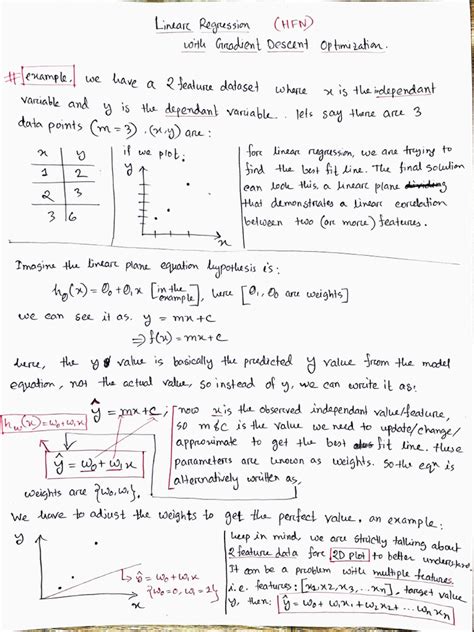 Linear Regression (HFN)
with Gradient Descent Optimization.
# example. we have a 2 feature dataset where x is the independant
variable and y is the dependant variable. lets say there are 3
data points (m = 3). (x,y) are:
x y
1 2
2 3
3 6
if we plot:
y
x
for linear regression, we are trying to
find the best fit line. The final solution
can look this, a linear plane
that demonstrates a linear correlation
between two (or more) features.
Imagine the linear plane equation hypothesis is:
hθ(x) = θ0 + θ1x [in the example], here [θ1, θ0 are weights]
we can see it as. y = mx + c
⇒ f(x) = mx + c
here, the y value is basically the predicted y value from the model
equation, not the actual value, so instead of y, we can write it as:
hw(x) = w0 + w1x
ŷ = mx + c;
ŷ = w0 + w1x
weights are {w0, w1},
now x is the observed independant value/feature,
so m & c is the value we need to update/change/
approximate to get the best fit line. these
parameters are known as weights. So the eqn is
alternatively written as,
We have to adjust the weights to get the perfect value. an example:
y
x
→ ŷ = w0 + w1x
{w0 = 0, w1 = 2}
keep in mind we are strictly talking about
2 feature data for 2D plot to better understand.
It can be a problem with multiple features.
i.e. features: [x1, x2, x3, ... xn], target value
y, then: ŷ = w0 + w1x1 + w2x2 + ... wnxn